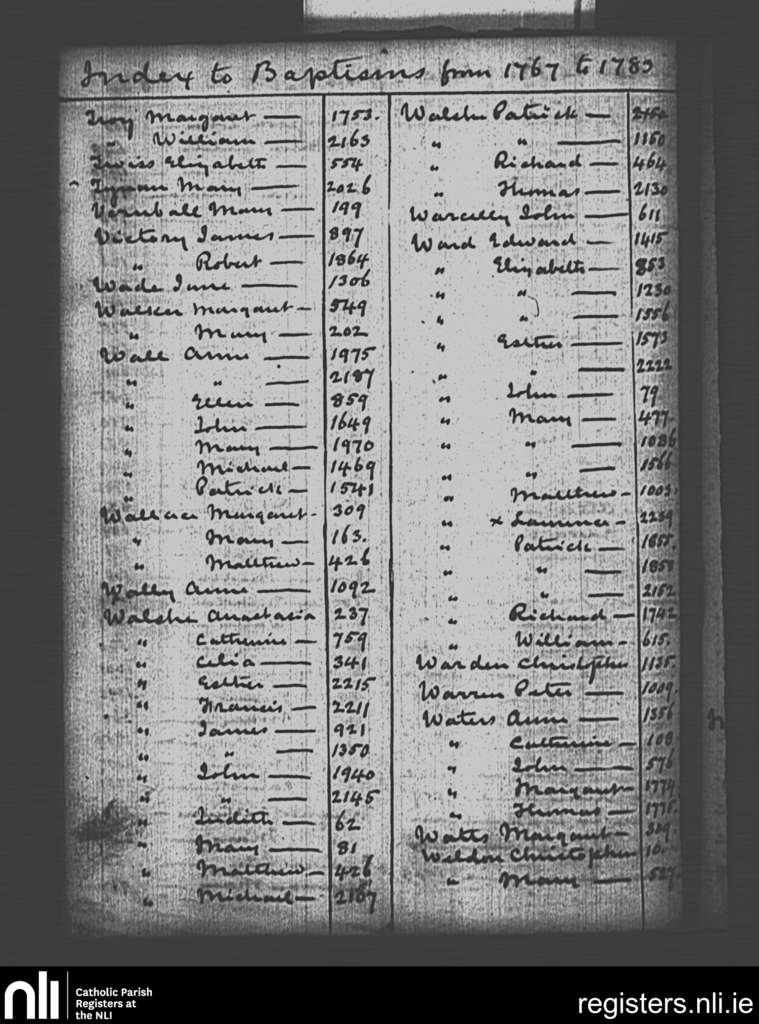 Index to Baptisms from 1767 to 1783
Troy Margaret — 1753.
" William — 2163
Twiss Elizabeth — 554
Tynan Mary — 2026
Mary — 199
Victory James — 897
" Robert — 1864
Wade Jane — 1306
Walker Margaret — 549
" Mary — 202
Wall Anne — 1975
" " — 2187
" Ellen — 859
" John — 1649
" Mary — 1970
" Michael — 1469
" Patrick — 1541
Wallace Margaret - 309
" Mary — 163.
" Matthew — 426
Wally Anne — 1092
Walshe Anastasia 237
" Catherine — 759
" Celia — 341
" Esther — 2215
" Francis — 2211
" James — 921
" " — 1350
" John — 1940
" " — 2145
" Judith — 62
" Mary — 81
" Matthew — 426
" Michael — 2167
Walshe Patrick —
" " — 1150
" Richard — 464
" Thomas — 2130
John — 611
Ward Edward — 1415
" Elizabeth — 853
" " — 1230
" " — 1556
" Esther — 1573
" " — 2222
" John — 79
" Mary — 477.
" " — 1086
" " — 1566
" Matthew - 1003.
" x Laurence - 2239
" Patrick — 1855.
" " — 1858
" " — 2152
" Richard — 1742
" William - 615.
Warden Christopher 1135.
Warren Peter — 1009.
Waters Anne — 1356
" Catherine — 108
" John — 576
" Margaret - 1774
" Thomas — 1775.
Watts Margaret -
Weldon Christopher
" Mary — 527
nli
Catholic Parish
Registers at
the NLI
registers.nli.ie